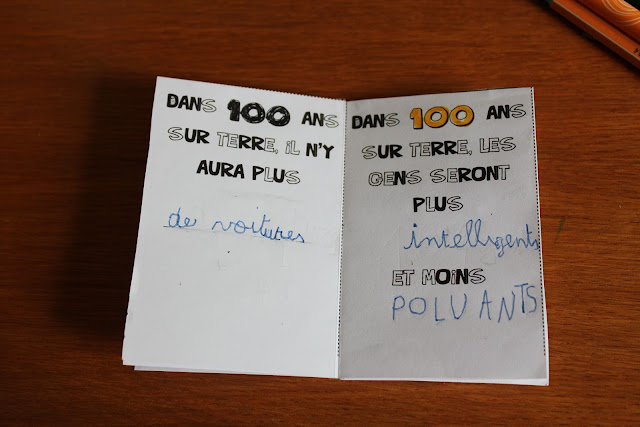 DANS 100 ANS
SUR TERRE, iL N'Y
AURA PLUS
de voitures
DANS 100 ANS
SUR TERRE, LES
GENS SERONT
PLUS
intelligents
ET MOiNS
POLUANTS